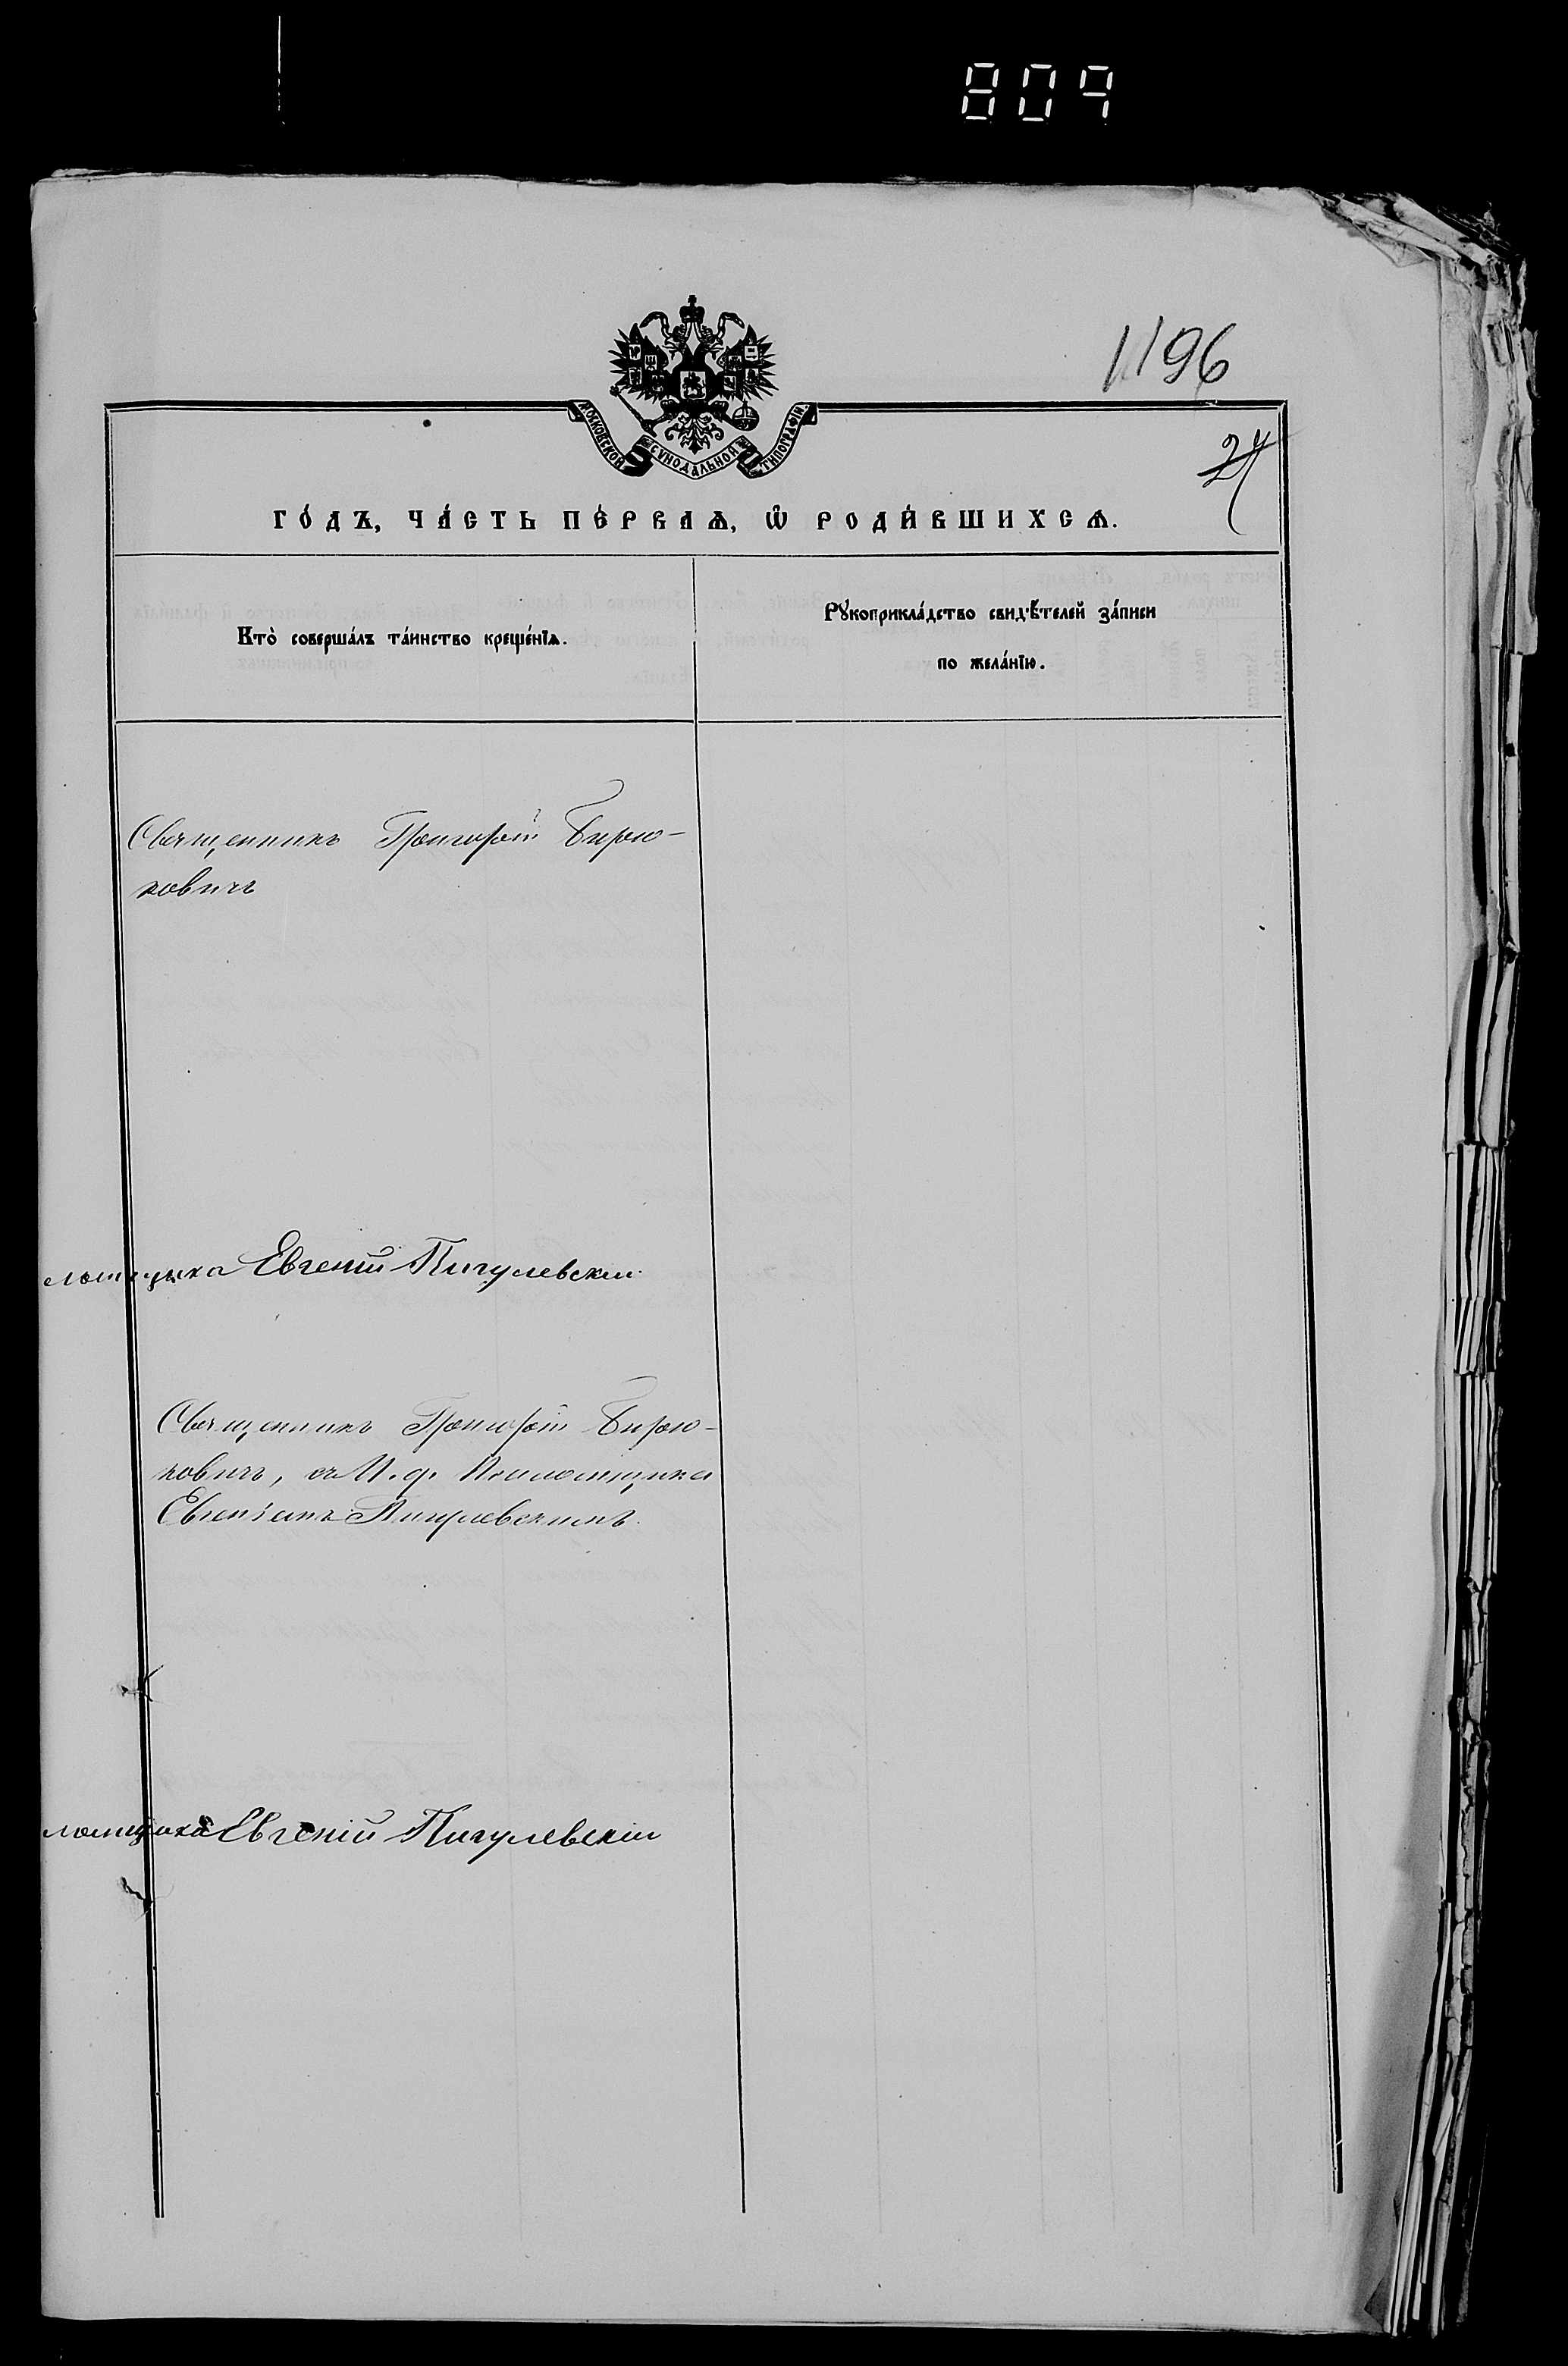 809
1196
МОСКОВСКОЙ СѴНОДАЛЬНОЙ ТИПОГРАФІИ
24
ГО́ДЪ, ЧА́СТЬ ПЕ́РВАѦ, Ѡ҆ РОДИ́ВШИХСѦ.
Кто̀ соверша́лъ та́инство креще́нїѧ.
Рꙋкоприкла́дство свидѣ́телей за́писи
по жела́нїю.
Священникъ Григорій Бирю-
ковичъ
ломщика Евгеній Пигулевскій
Священникъ Григорій Бирю-
ковичъ, съ И. д. Псаломщика
Евгеніемъ Пигулевскимъ.
ломщика Евгеній Пигулевскій